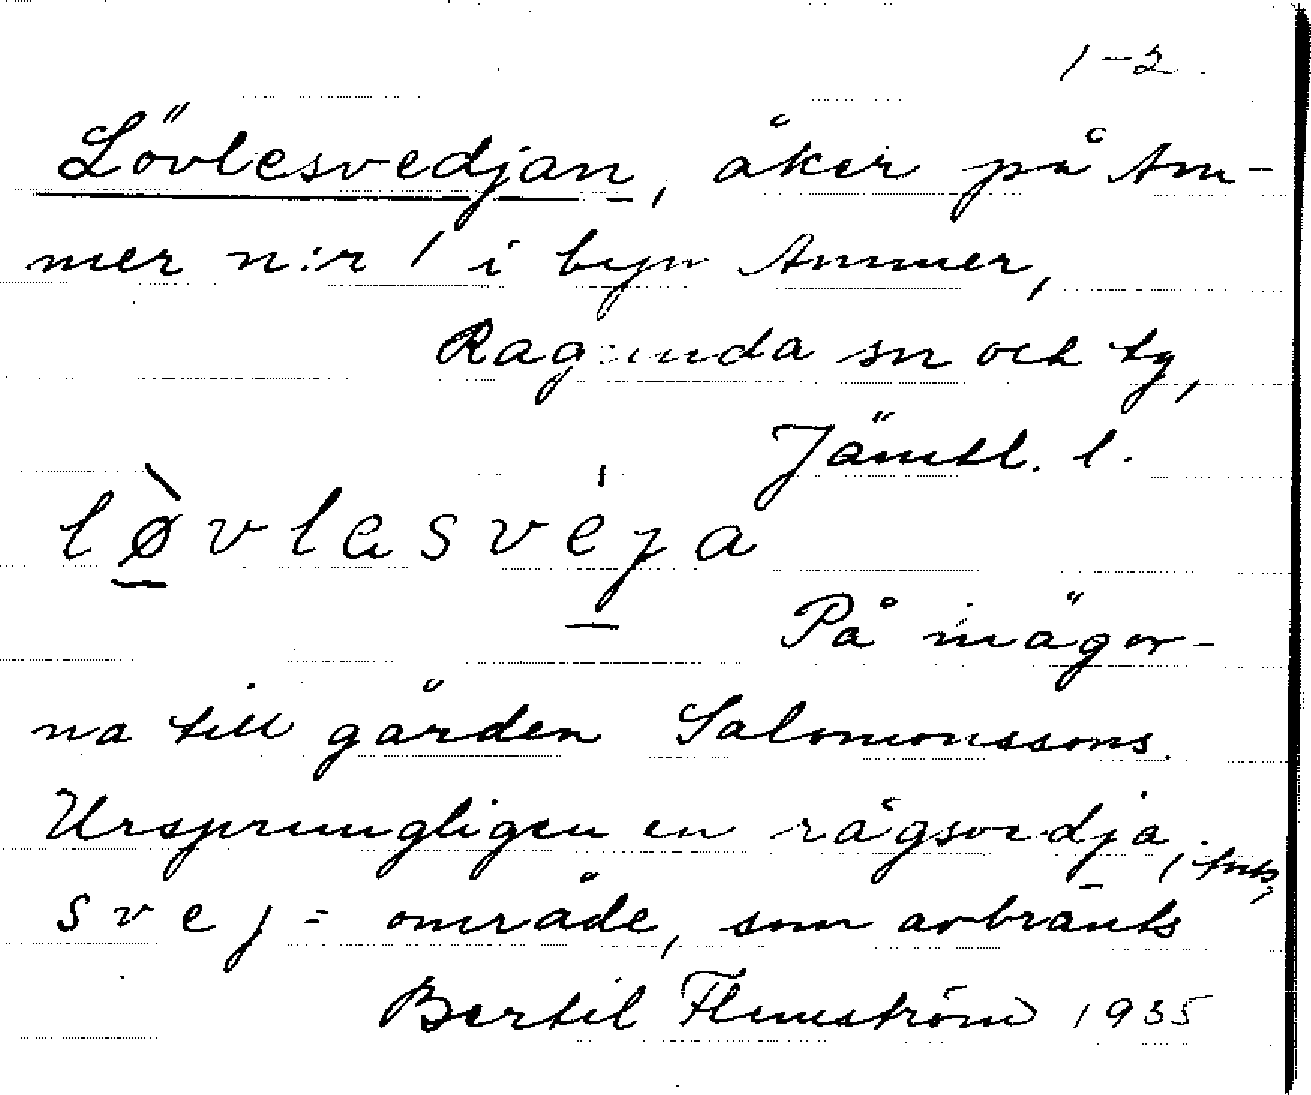 1-2.
Lövlesvedjan, åker på Am-
mer n:r 1 i byn Ammer,
Ragunda sn och tg,
Jämtl. l.
løvlesveja
På inägor-
na till gården Salomonssons.
Ursprungligen en rågsvedja,
svej = område, som avbränts
Bertil Flemström 1935